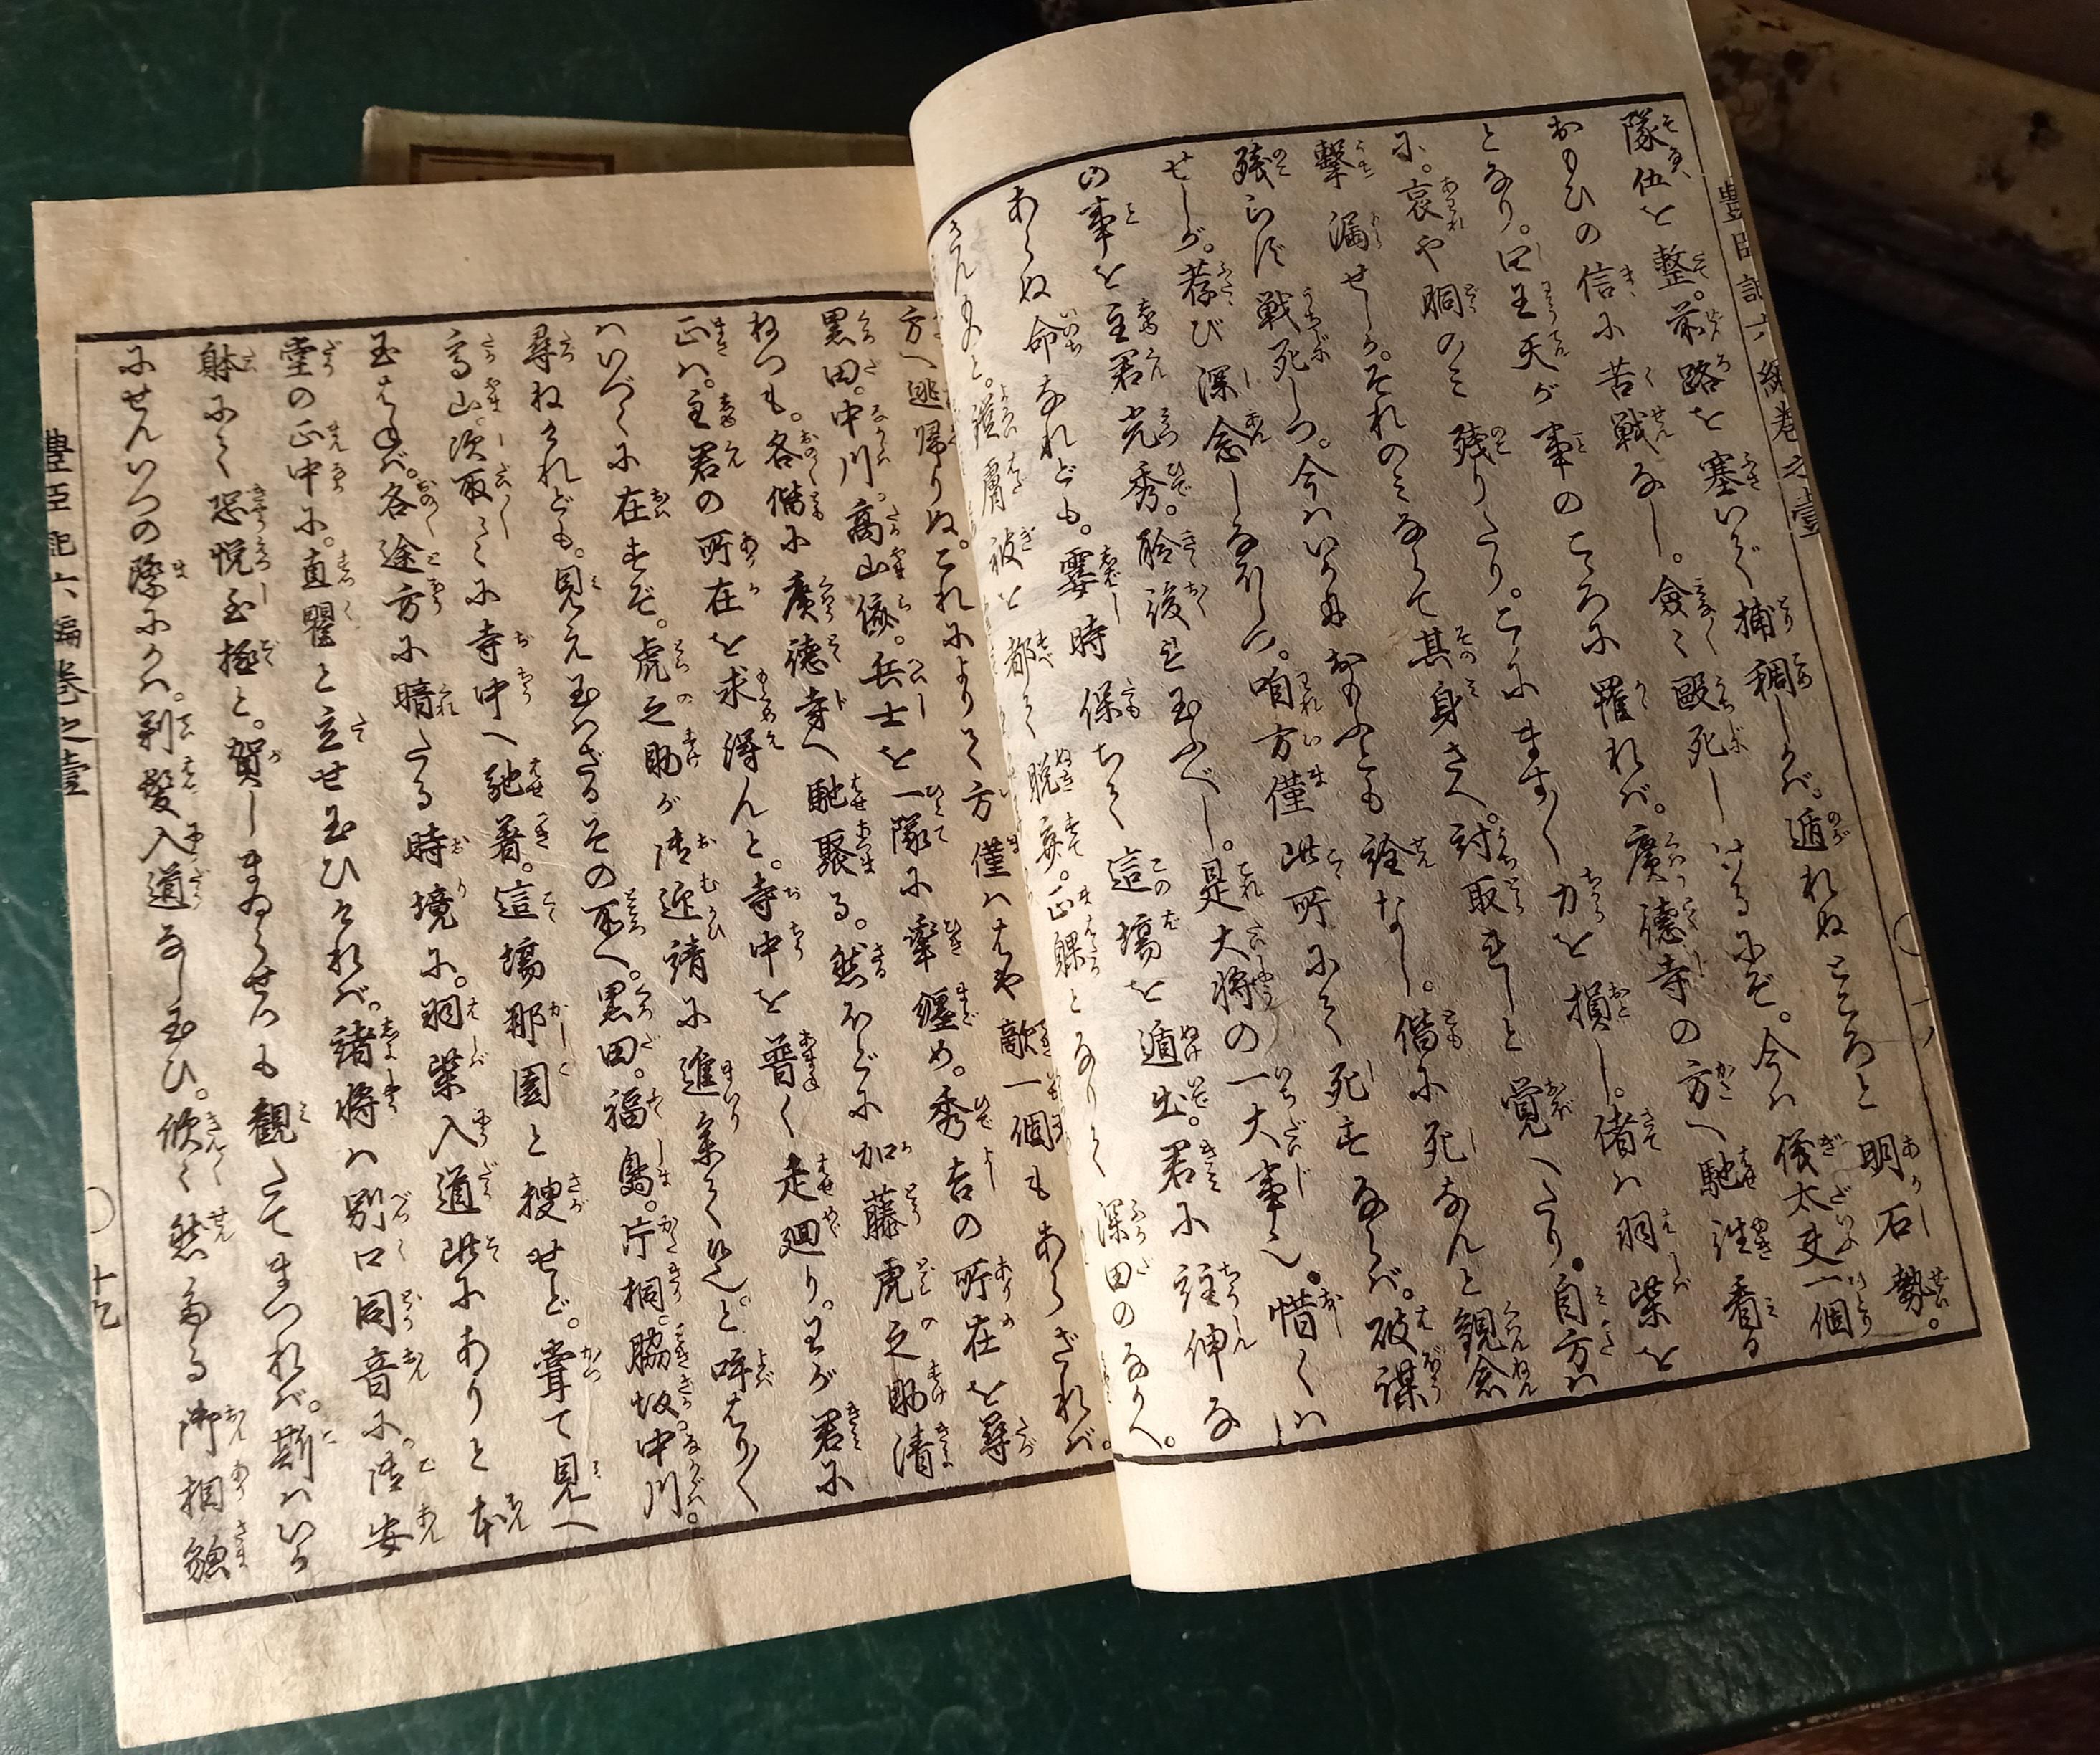 豊臣記六編巻之壹
隊伍を整。前路を塞いで捕稠しかバ。遁れぬところと明石勢。
おもひの信に苦戦なし。僉々殴死しけるにぞ。今ハ儀太夫一個
となり。四王天が事のころに罹れバ。廣徳寺の方へ馳往看る
に。哀や胴のミ残りたり。こハますます力を損し。偖ハ羽柴を
撃漏せしか。それのミならで其身さへ。討取れしと覚へたり。自方ハ
残らず戦死しつ。今ハいかにおもふとも詮なし。偕に死なんと観念
せしが。荐び深念しなほし。咱方僅此所にて死すならバ。破謀
の事を主君光秀。聆後れ玉ふべし。是大将の一大事也。惜くハ
あらぬ命なれども。霎時保ちて這場を遁出。君に註伸な
さんものと。鎧膚被を都て脱棄。正躶となりて深田のなかへ。
方へ逃帰りぬ。これによりて方僅ハはや敵一個もあらざれバ。
黒田。中川。高山儕。兵士を一隊に牽纏め。秀吉の所在を尋
ねつも。各偕に廣徳寺へ馳聚る。然るほどに加藤虎之助清
正ハ。主君の所在を求得んと。寺中を普く走廻り。わが君に
ハいづくに在すぞ。虎之助が御迎請に進参て候也。と呼はりはり
尋ねけれども。見え玉はざるその所へ。黒田。福島。片桐。脇坂。中川。
高山。次取々に寺中へ馳着。這場那園と捜せど。聳て見へ
玉はねバ。各途方に暗たる時境に。羽柴入道此にありと本
堂の正中に。直瞿と立せ玉ひけれバ。諸将ハ別口同音に。御安
躰にて恐悦至極と。賀しまゐらせつも観たてまつれバ。斯ハいか
にせんいつの際にかハ。剃髪入道なし玉ひ。欣々然たる御相貌
豊臣記六編巻之壹
十九